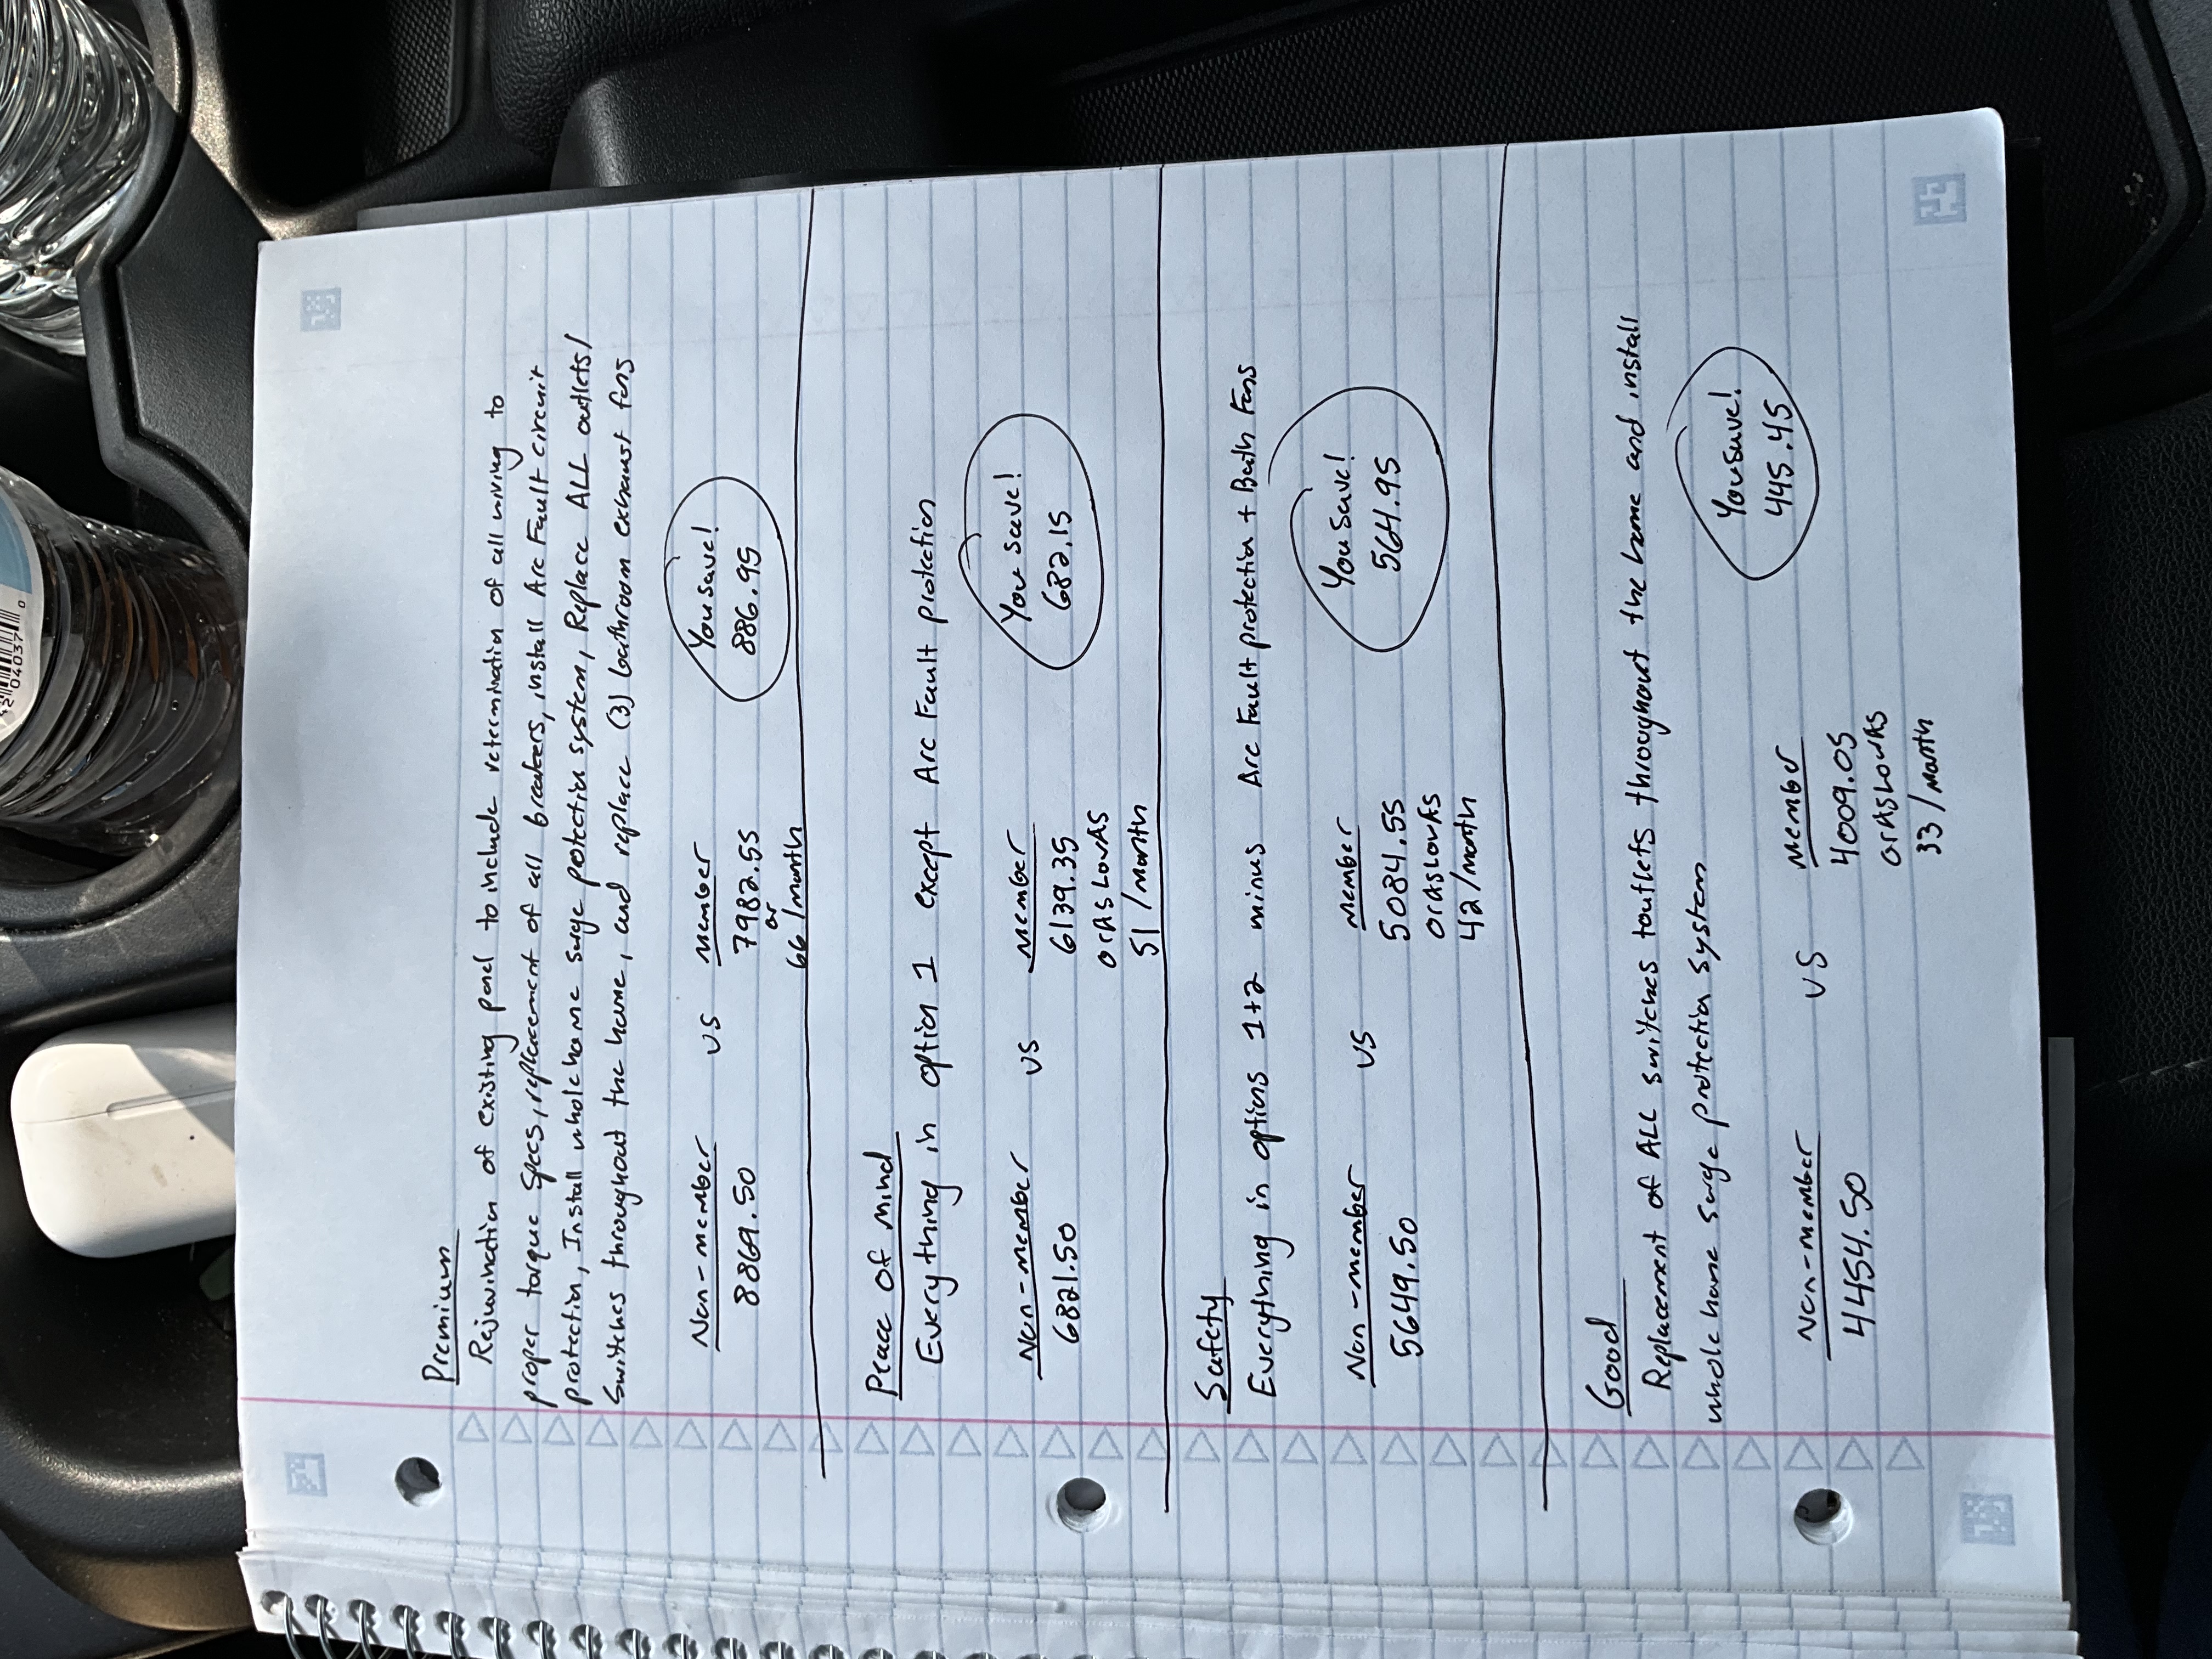 Premium
Rejuvination of existing panel to include retermination of all wiring to
proper torque specs, replacement of all breakers, install Arc Fault circuit
protection, Install whole home surge protection system, Replace ALL outlets/
switches throughout the home, and replace (3) bathroom exhaust fans
Non-member vs member You save!
8869.50 7982.55 886.95
or
66/month
Peace of mind
Everything in option 1 except Arc Fault protection
Non-member vs member You save!
6821.50 6139.35 682.15
or AS Low AS
51/month
Safety
Everything in options 1+2 minus Arc Fault protection + Bath Fans
Non-member vs member You save!
5649.50 5084.55 564.95
or AS Low AS
42/month
Good
Replacement of ALL switches + outlets throughout the home and install
whole home surge protection system
Non-member vs member You save!
4454.50 4009.05 445.45
or AS Low AS
33/month
04037 0